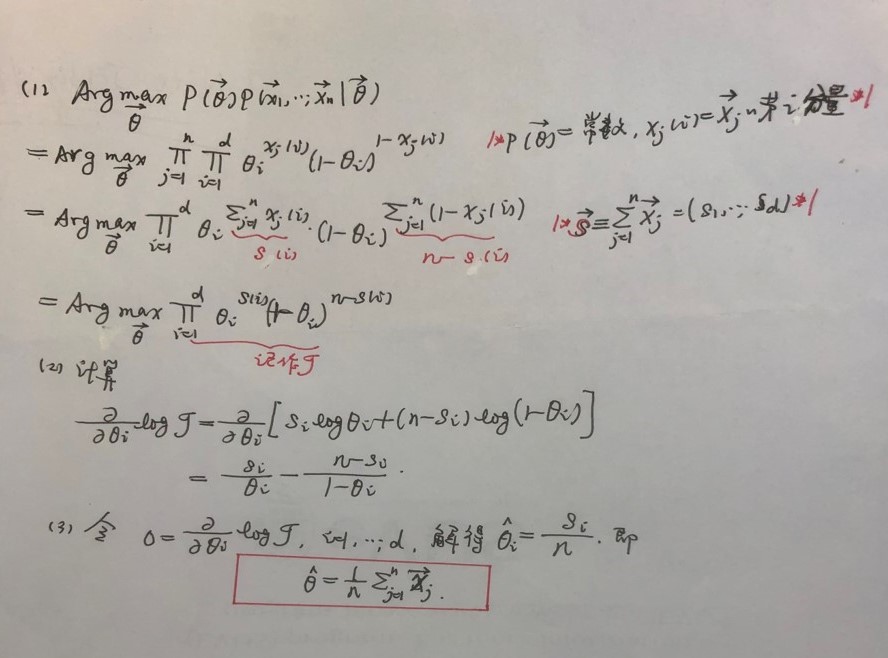 (1) Arg max_{\vec{θ}} P(\vec{θ})P(\vec{x}_1,…,\vec{x}_n|\vec{θ})
/* P(\vec{θ}) = 常数, x_j(i) = \vec{x}_j的第i分量 */
= Arg max_{\vec{θ}} ∏_{j=1}^{n} ∏_{i=1}^{d} θ_i^{x_j(i)} (1-θ_i)^{1-x_j(i)}
= Arg max_{\vec{θ}} ∏_{i=1}^{d} θ_i^{∑_{j=1}^{n} x_j(i)} · (1-θ_i)^{∑_{j=1}^{n} (1-x_j(i))}
/* \vec{S} ≡ ∑_{j=1}^{n} \vec{x}_j = (s_1,…, s_d) */
s(i)
n-s(i)
= Arg max_{\vec{θ}} ∏_{i=1}^{d} θ_i^{s(i)} (1-θ_i)^{n-s(i)}
记作J
(2) 计算
∂/∂θ_i log J = ∂/∂θ_i [ s_i log θ_i + (n-s_i) log(1-θ_i) ]
= s_i/θ_i - (n-s_i)/(1-θ_i) .
(3) 令 0 = ∂/∂θ_i log J, i=1,…,d, 解得 \hat{θ}_i = s_i/n . 即
\hat{θ} = 1/n ∑_{j=1}^{n} \vec{x}_j .